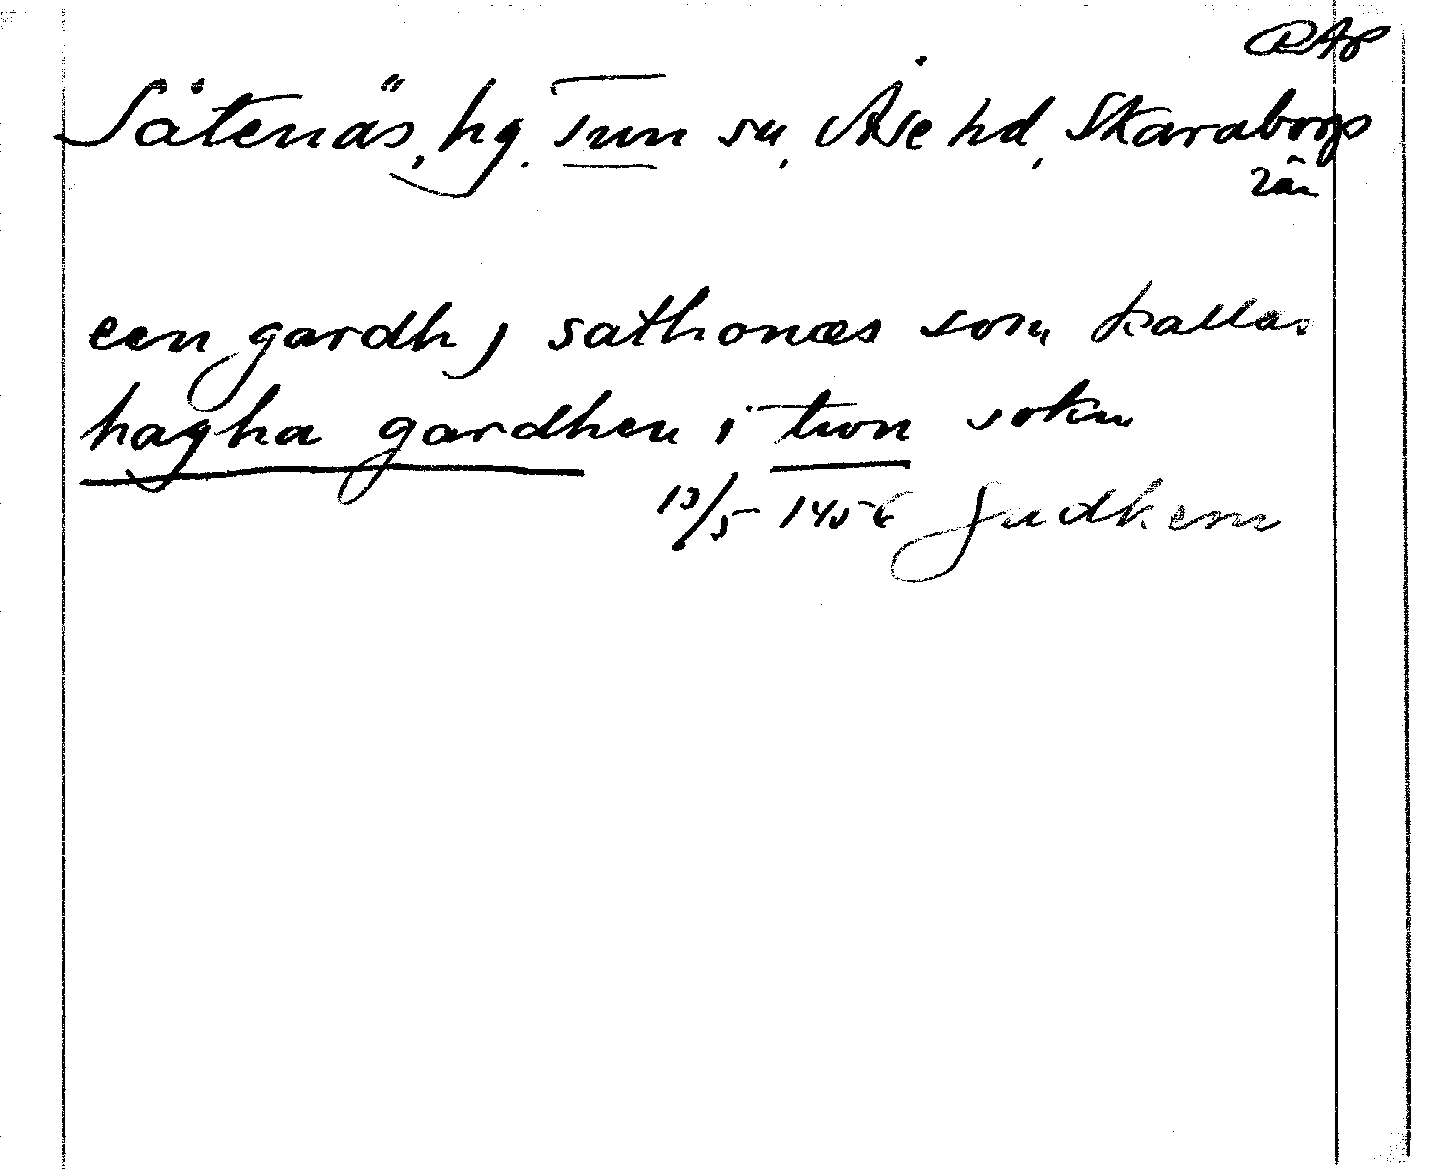 RAp
Såtenäs, hg. Tun sn, Åse hd, Skaraborgs
län
een gardh j sathonæs som kallas
hagha gardhen i twn sokn
13/5 1456 Gudhem